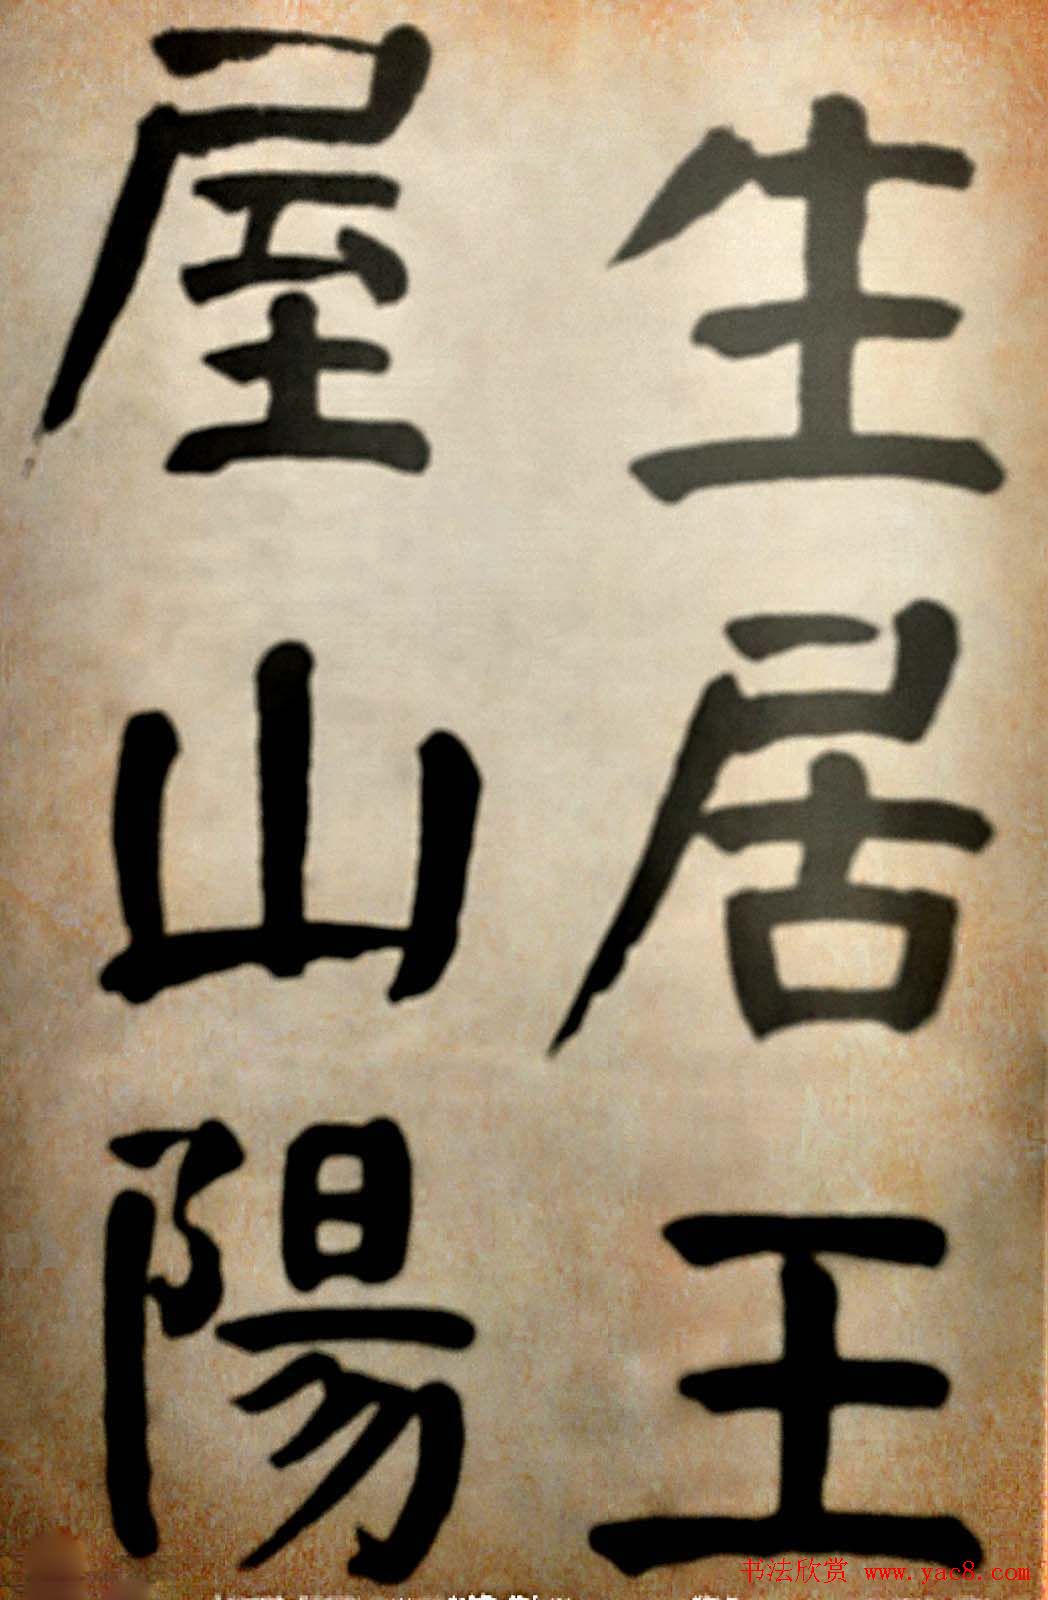 生居王
屋山陽
书法欣赏 www.yac8.com